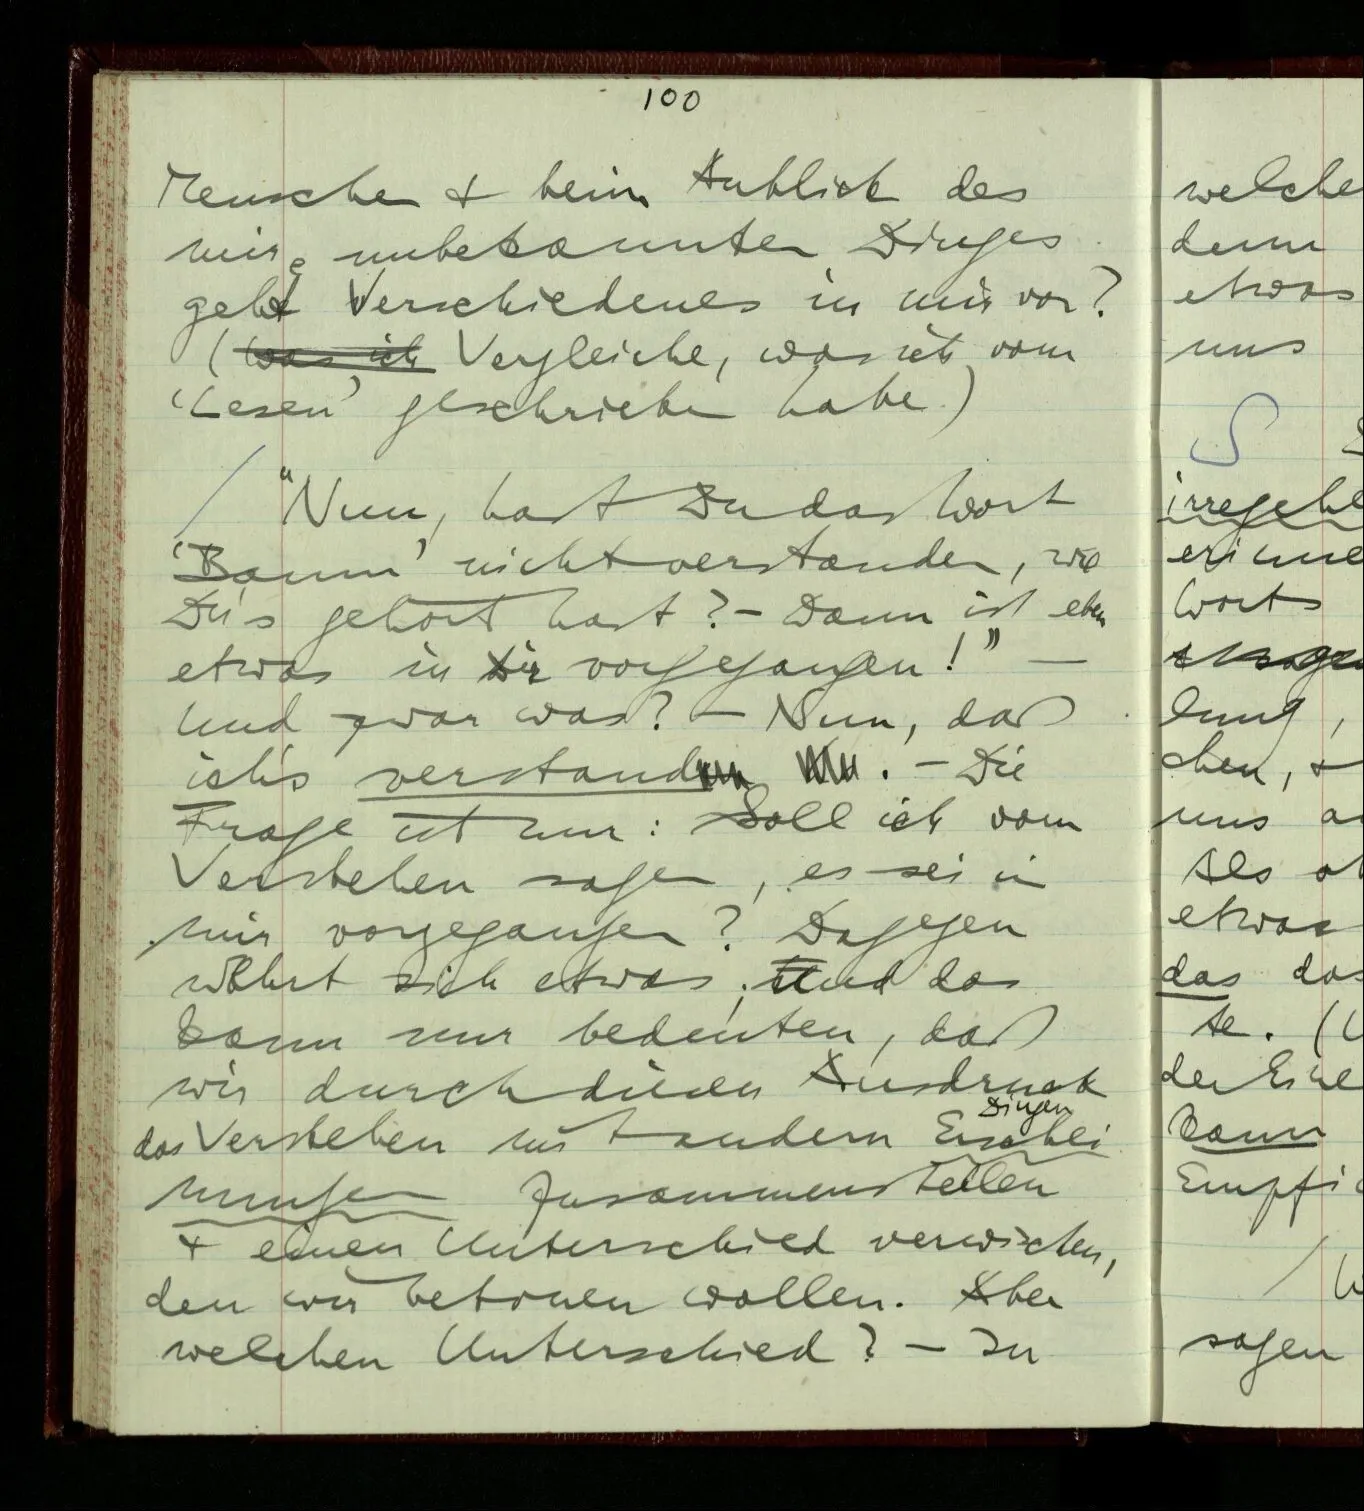 100
Menschen & beim Anblick des
mir unbekannten Dinges
gehe Verschiedenes in mir vor?
(Was ich Vergleiche, was ich vom
‘Lesen’ geschrieben habe.)
/ “Nun, hast Du das Wort
‘Baum’ nicht verstanden, wie
Du's gehört hast? – Dann ist eben
etwas in Dir vorgegangen!” –
Und zwar was? – Nun, daß
ich's verstand. – Die
Frage ist nur: Soll ich vom
Verstehen sagen, es sei in
mir vorgegangen? Dagegen
wehrt sich etwas; und das
kann nur bedeuten, daß
wir durch diesen Ausdruck
Dingen
das Verstehen mit andern Erschei
nungen zusammenstellen
& einen Unterschied verwischen,
den wir betonen wollen. Aber
welchen Unterschied? – In
welche
denn
etwas
uns
S
irregehe
erinne
Worts
lung,
chen, &
uns
Als
etwas
das das
te. (
der
kann
Empfi
/
sagen